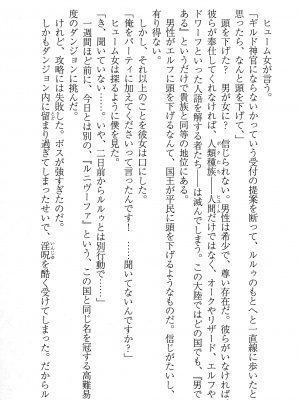 ヒューム女が言う。
「ギルド神官にならないかっていう受付の提案を断って、ルルゥのもとへと一直線に歩いたと
思ったら、なんと頭を下げて、
頭を下げた？　男が女に？　信じられない。男性は希少で、尊い存在だ。彼らがいなければ、
彼らが奉仕してくれなければ、人類種族──人間だけではなく、オークやリザード、エルフや
ドワーフといった人語を解する者たち──は滅んでしまう。この大陸ではどの国でも、『男で
ある』というだけで貴族と同等の地位にある。
男性がエルフに頭を下げるなんて、国王が平民に頭を下げるようなものだ。信じがたいし、
有り得ない。
しかし、それ以上のことを彼女は口にした。
「『俺をパーティに加えてください』って言ったんです！　……聞いてないんですか？」
ヒューム女は探るように僕を見た。
「あ、聞いてない……。いや、二日前からルルゥとは別行動で……」
一週間ほど前に、今日とは別の、『ルニヴーファ』という、この国と同じ名を冠する高難易
度のダンジョンに挑んだ。
けれど、攻略には失敗した。ボスが強すぎたのだ。
しかもダンジョン内に留まり過ぎてしまったせいで、淫呪を酷く受けてしまった。だからル